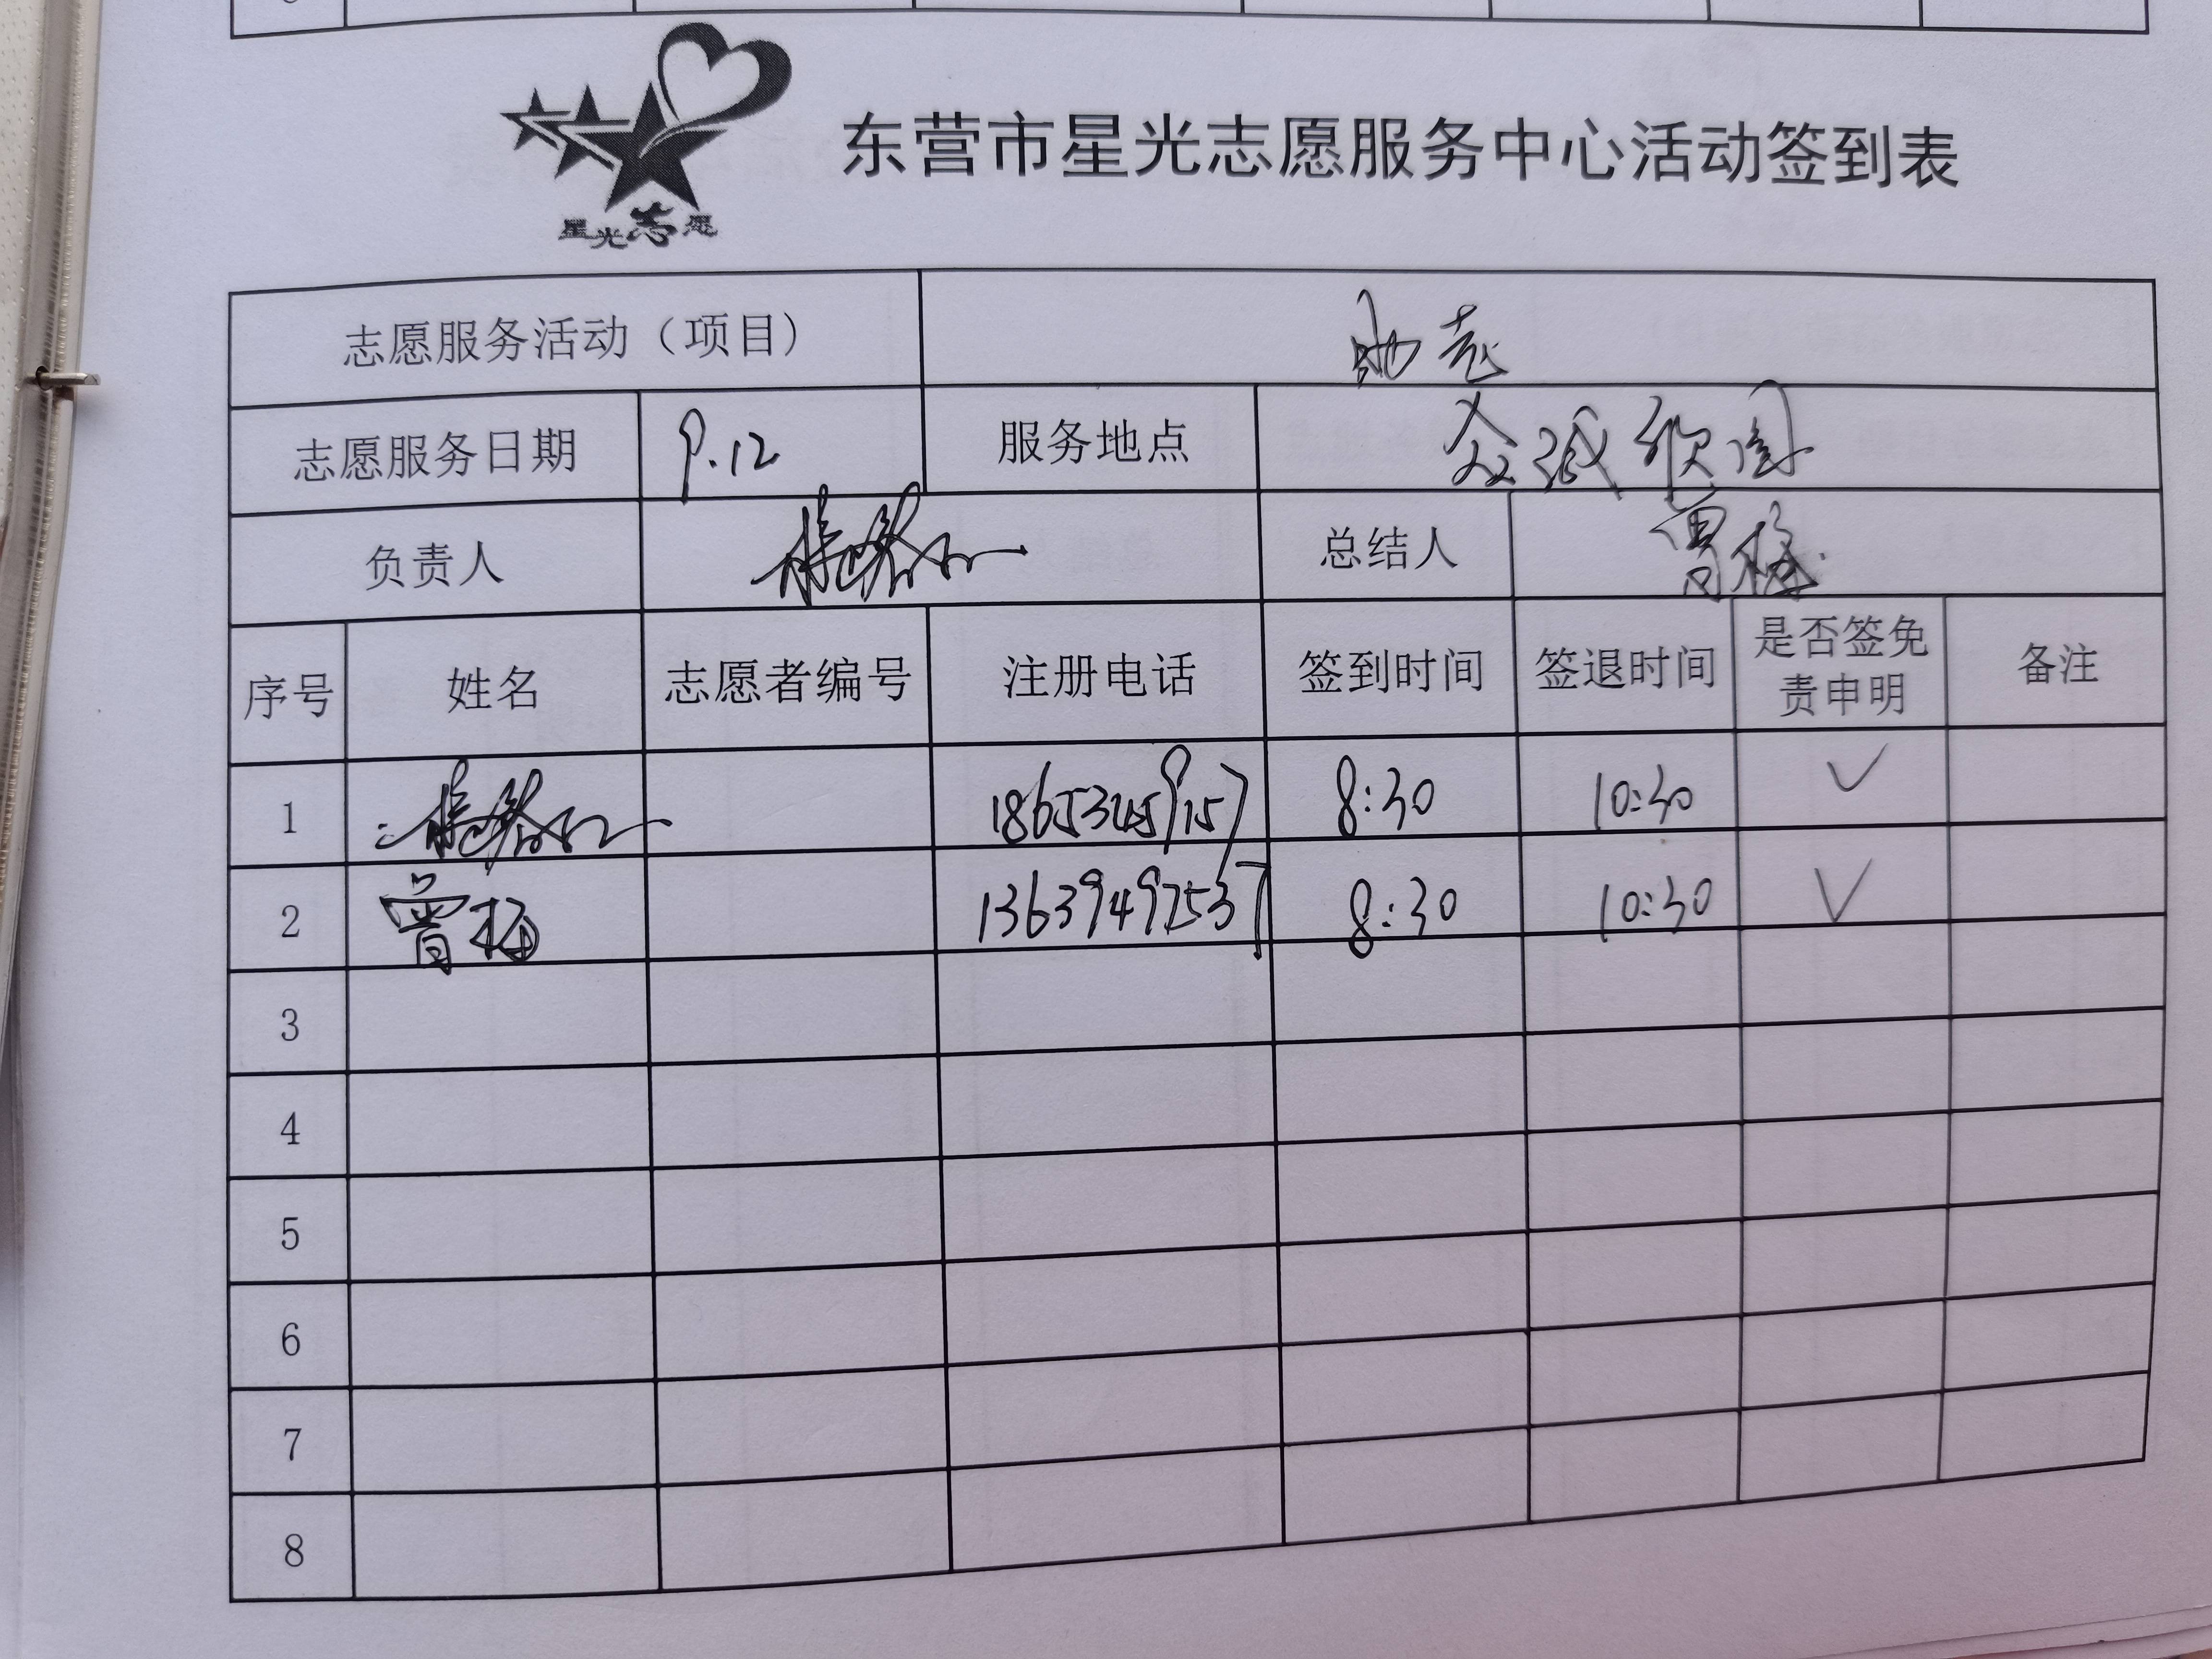 东营市星光志愿服务中心活动签到表
星光志愿
志愿服务活动（项目） 助老
志愿服务日期 9.12 服务地点 众诚欣园
负责人 总结人 曾梅
序号 姓名 志愿者编号 注册电话 签到时间 签退时间 是否签免责申明 备注
1 18653459157 8:30 10:30 √
2 曾梅 13639492537 8:30 10:30 √
3
4
5
6
7
8